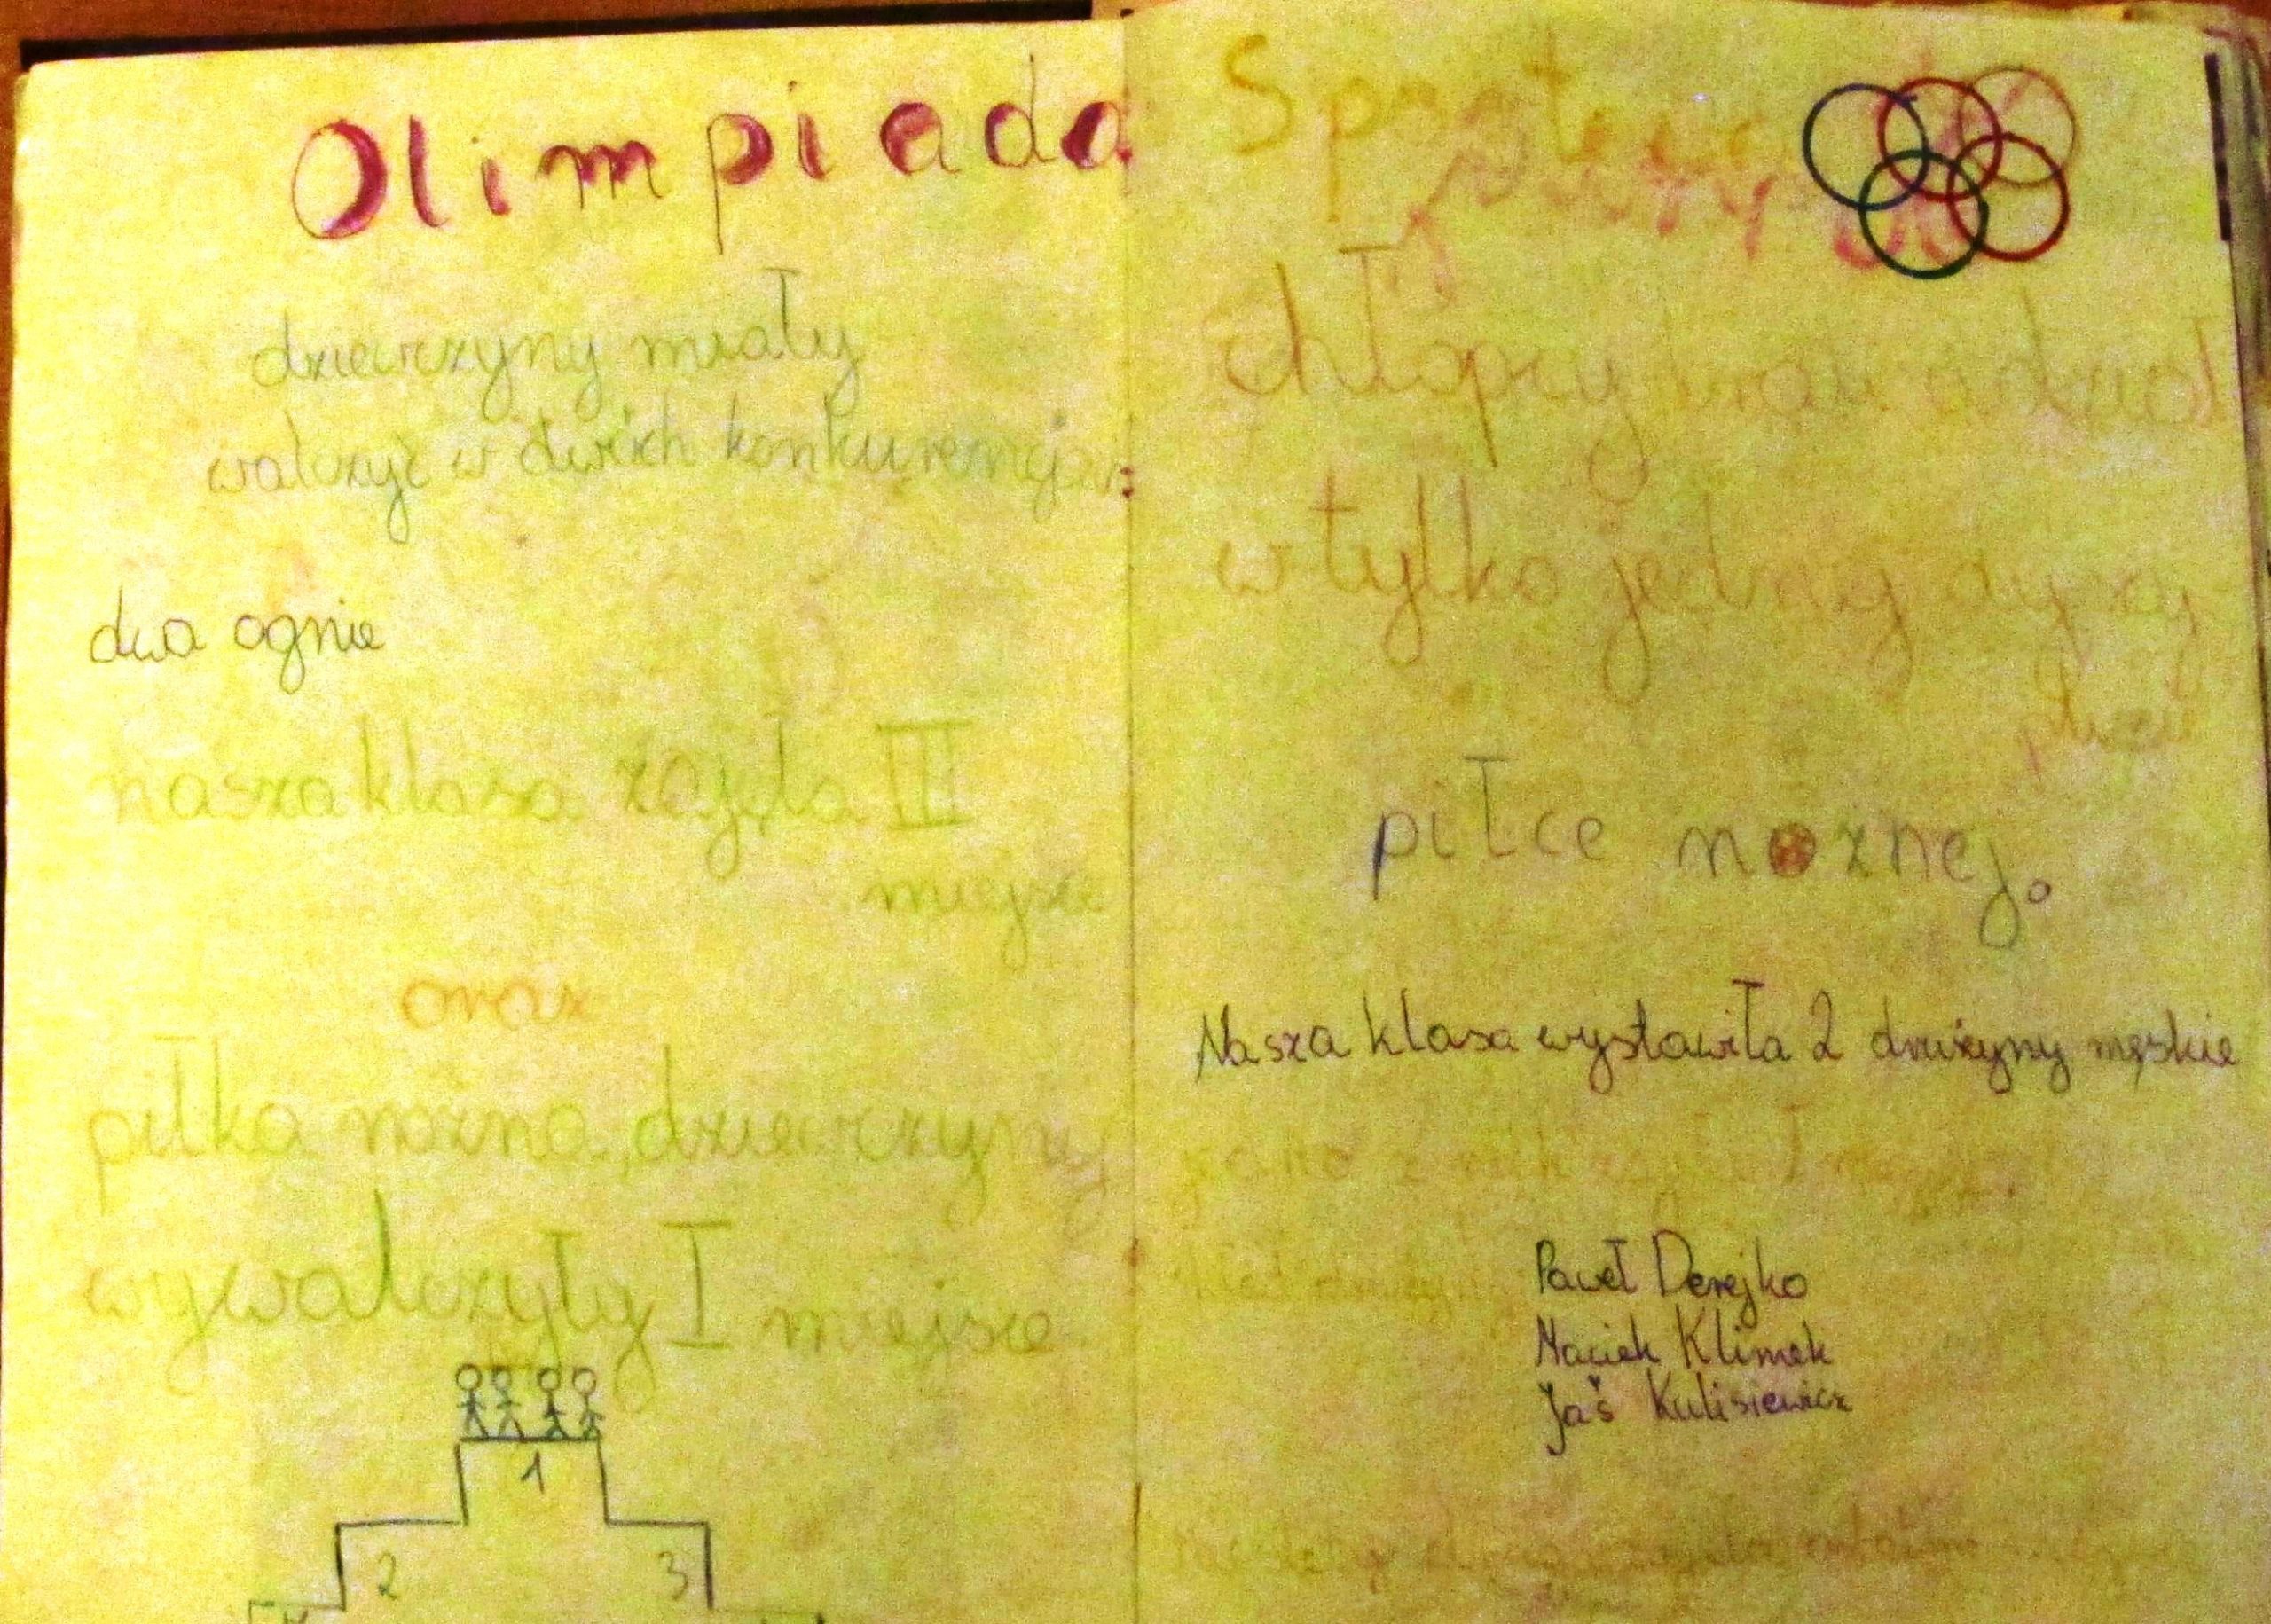 Olimpiada
dziewczyny miały
walczyć w dwóch konkurencjach
dwa ognie
nasza klasa zajęła III
miejsce
oraz
piłka nożna, dziewczyny
wywalczyły I miejsce
1
2
3
Sportowa
chłopcy brali udział
w tylko jednej
piłce nożnej.
Nasza klasa wystawiła 2 drużyny męskie
jedna z nich zajęła I miejsce.
Paweł Derejko
Maciek Klimek
Jaś Kulisiewicz